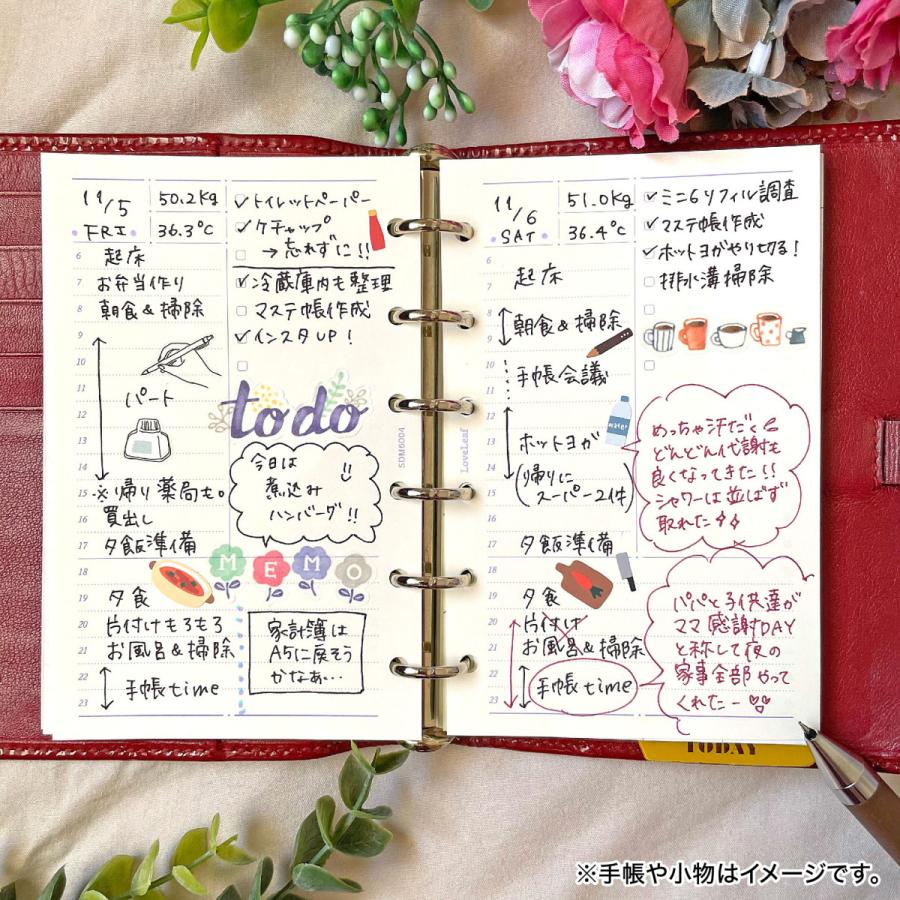 11/5
50.2kg
FRI
36.3℃
トイレットペーパー
ケチャップ
→忘れずに!!
冷蔵庫内も整理
マステ帳作成
インスタUP!
6 起床
7 お弁当作り
8 朝食&掃除
9
10
11
パート
12
13
14
15 ※帰り薬局も。
16 買出し
17 夕飯準備
18
19 夕食
20 片付けもろもろ
21 お風呂&掃除
22 手帳time
23
todo
今日は
煮込み
ハンバーグ!!
MEMO
家計簿は
A5に戻そう
かなぁ…
SDM6004
LoveLeaf
11/6
51.0kg
SAT
36.4℃
ミニ6リフィル調査
マステ帳作成
ホットヨガやり切る!
排水溝掃除
6
7 起床
8 朝食&掃除
9
10 手帳会議
11
12
13 ホットヨガ
14
15 (帰りに
スーパー2件)
16
17 夕飯準備
18
19 夕食
20 片付け
21 お風呂&掃除
22 手帳time
23
water
めっちゃ汗だく
どんどん代謝も
良くなってきた!!
シャワーは並ばず
取れた
パパと子供達が
ママ感謝DAY
と称して夜の
家事全部やって
くれたー
TODAY
※手帳や小物はイメージです。